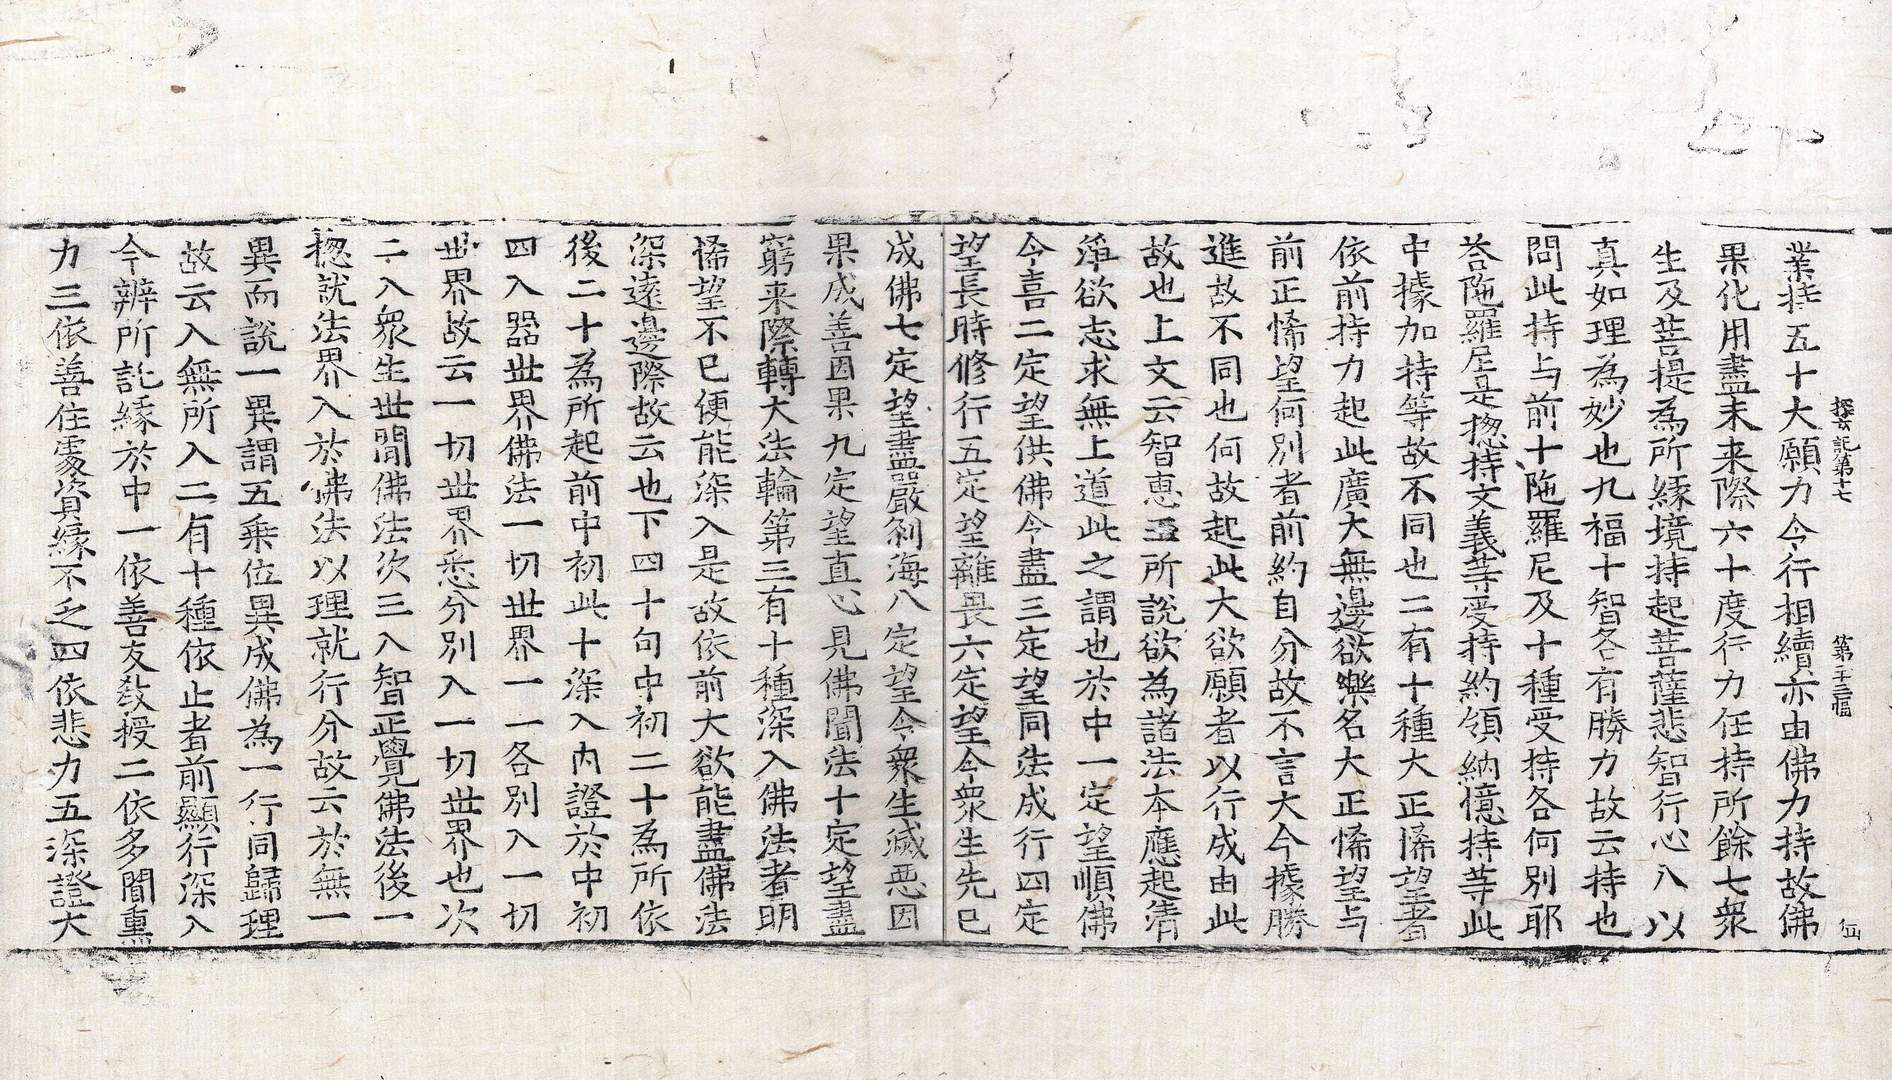 探玄記第十七 第二十三幅 伝
業持五十大願力令行相續亦由佛力持故佛
果化用盡未来際六十度行力任持所餘七衆
生及菩提為所緣境持起菩薩悲智行心八以
真如理為妙也九福十智各有勝力故云持也
問此持与前十陁羅尼及十種受持各何別耶
荅陁羅尼是揔持文義等受持約領納憶持等此
中據加持等故不同也二有十種大正悕望者
依前持力起此廣大無邊欲樂名大正悕望与
前正悕望何別者前約自分故不言大今據勝
進故不同也何故起此大欲願者以行成由此
故也上文云智恵王所說欲為諸法本應起清
淨欲志求無上道此之謂也於中一定望順佛
令喜二定望供佛令盡三定望同法成行四定
望長時修行五定望離畏六定望令衆生先已
成佛七定望盡嚴刹海八定望令衆生滅惡因
果成善因果九定望直心見佛聞法十定望盡
窮来際轉大法輪第三有十種深入佛法者明
悕望不已便能深入是故依前大欲能盡佛法
深遠邊際故云也下四十句中初二十為所依
後二十為所起前中初此十深入内證於中初
四入器世界佛法一切世界一一各別入一切
世界故云一切世界悉分別入一切世界也次
二入衆生世間佛法次三入智正覺佛法後一
揔說法界入於佛法以理就行分故云於無一
異而說一異謂五乗位異成佛為一行同歸理
故云入無所入二有十種依止者前顯行深入
今辨所託緣於中一依善友敎授二依多聞熏
力三依善住處資緣不乏四依悲力五深證大